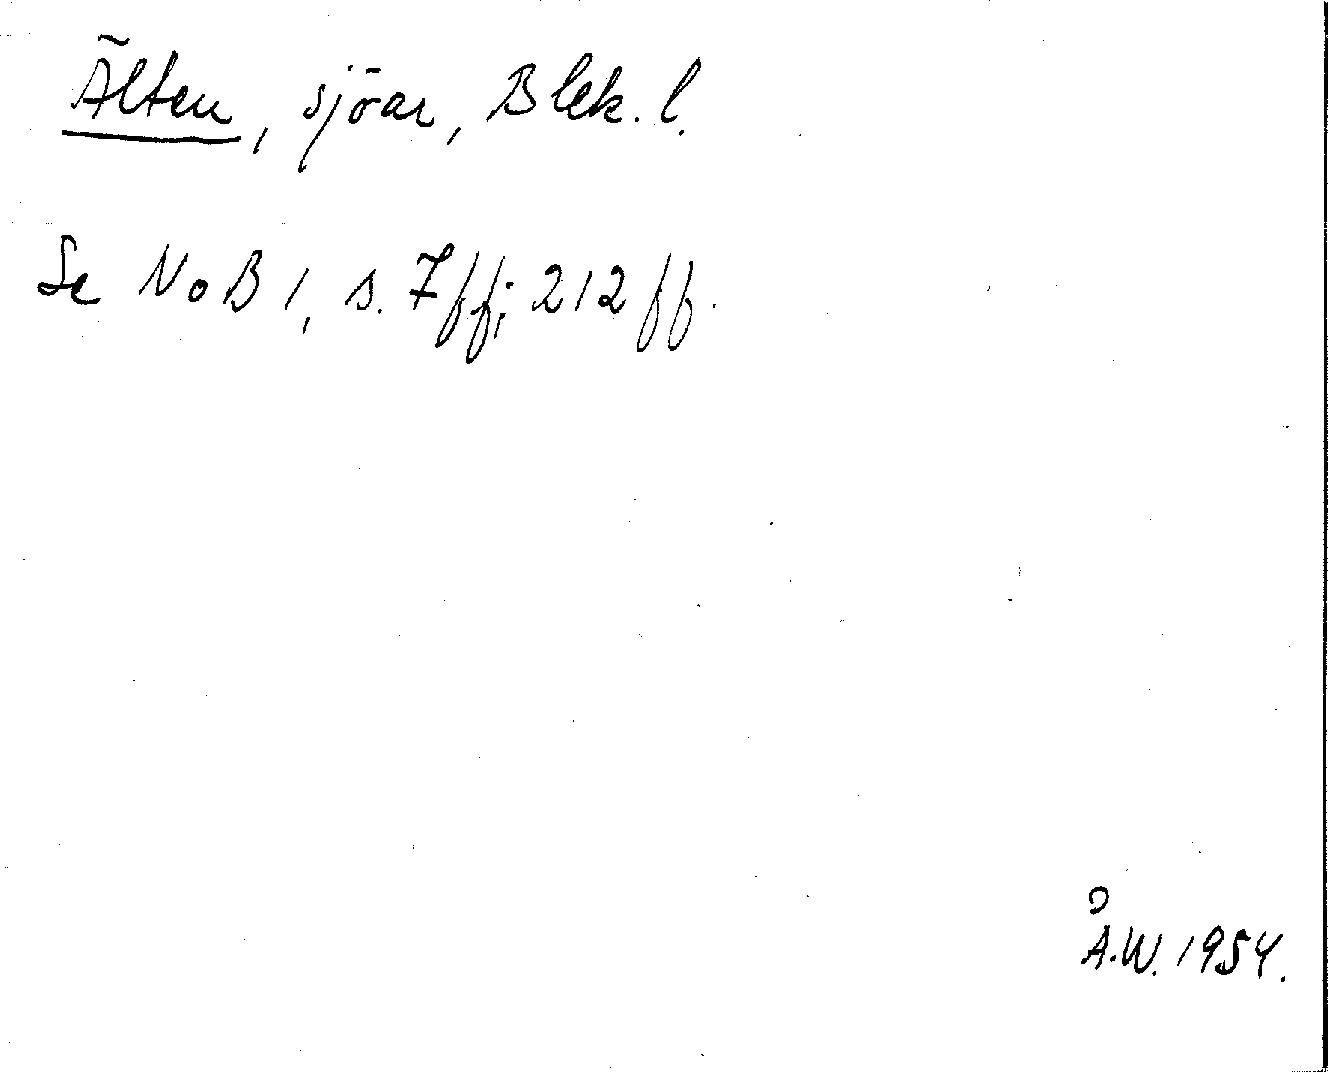 Älten, sjöar, Blek. l.
Se NoB 1, s. 7ff; 212ff.
Å.W. 1954.